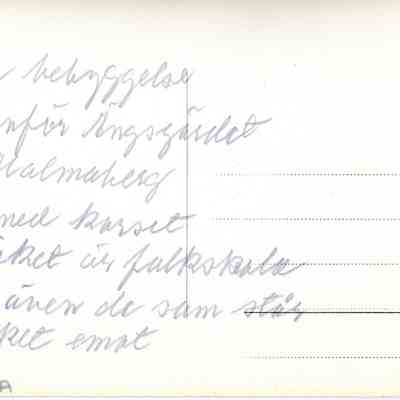 bebyggelse
nför Ängsgärdet
Malmaberg
med korset
cket är folkskola
även de som står
ket emot
A